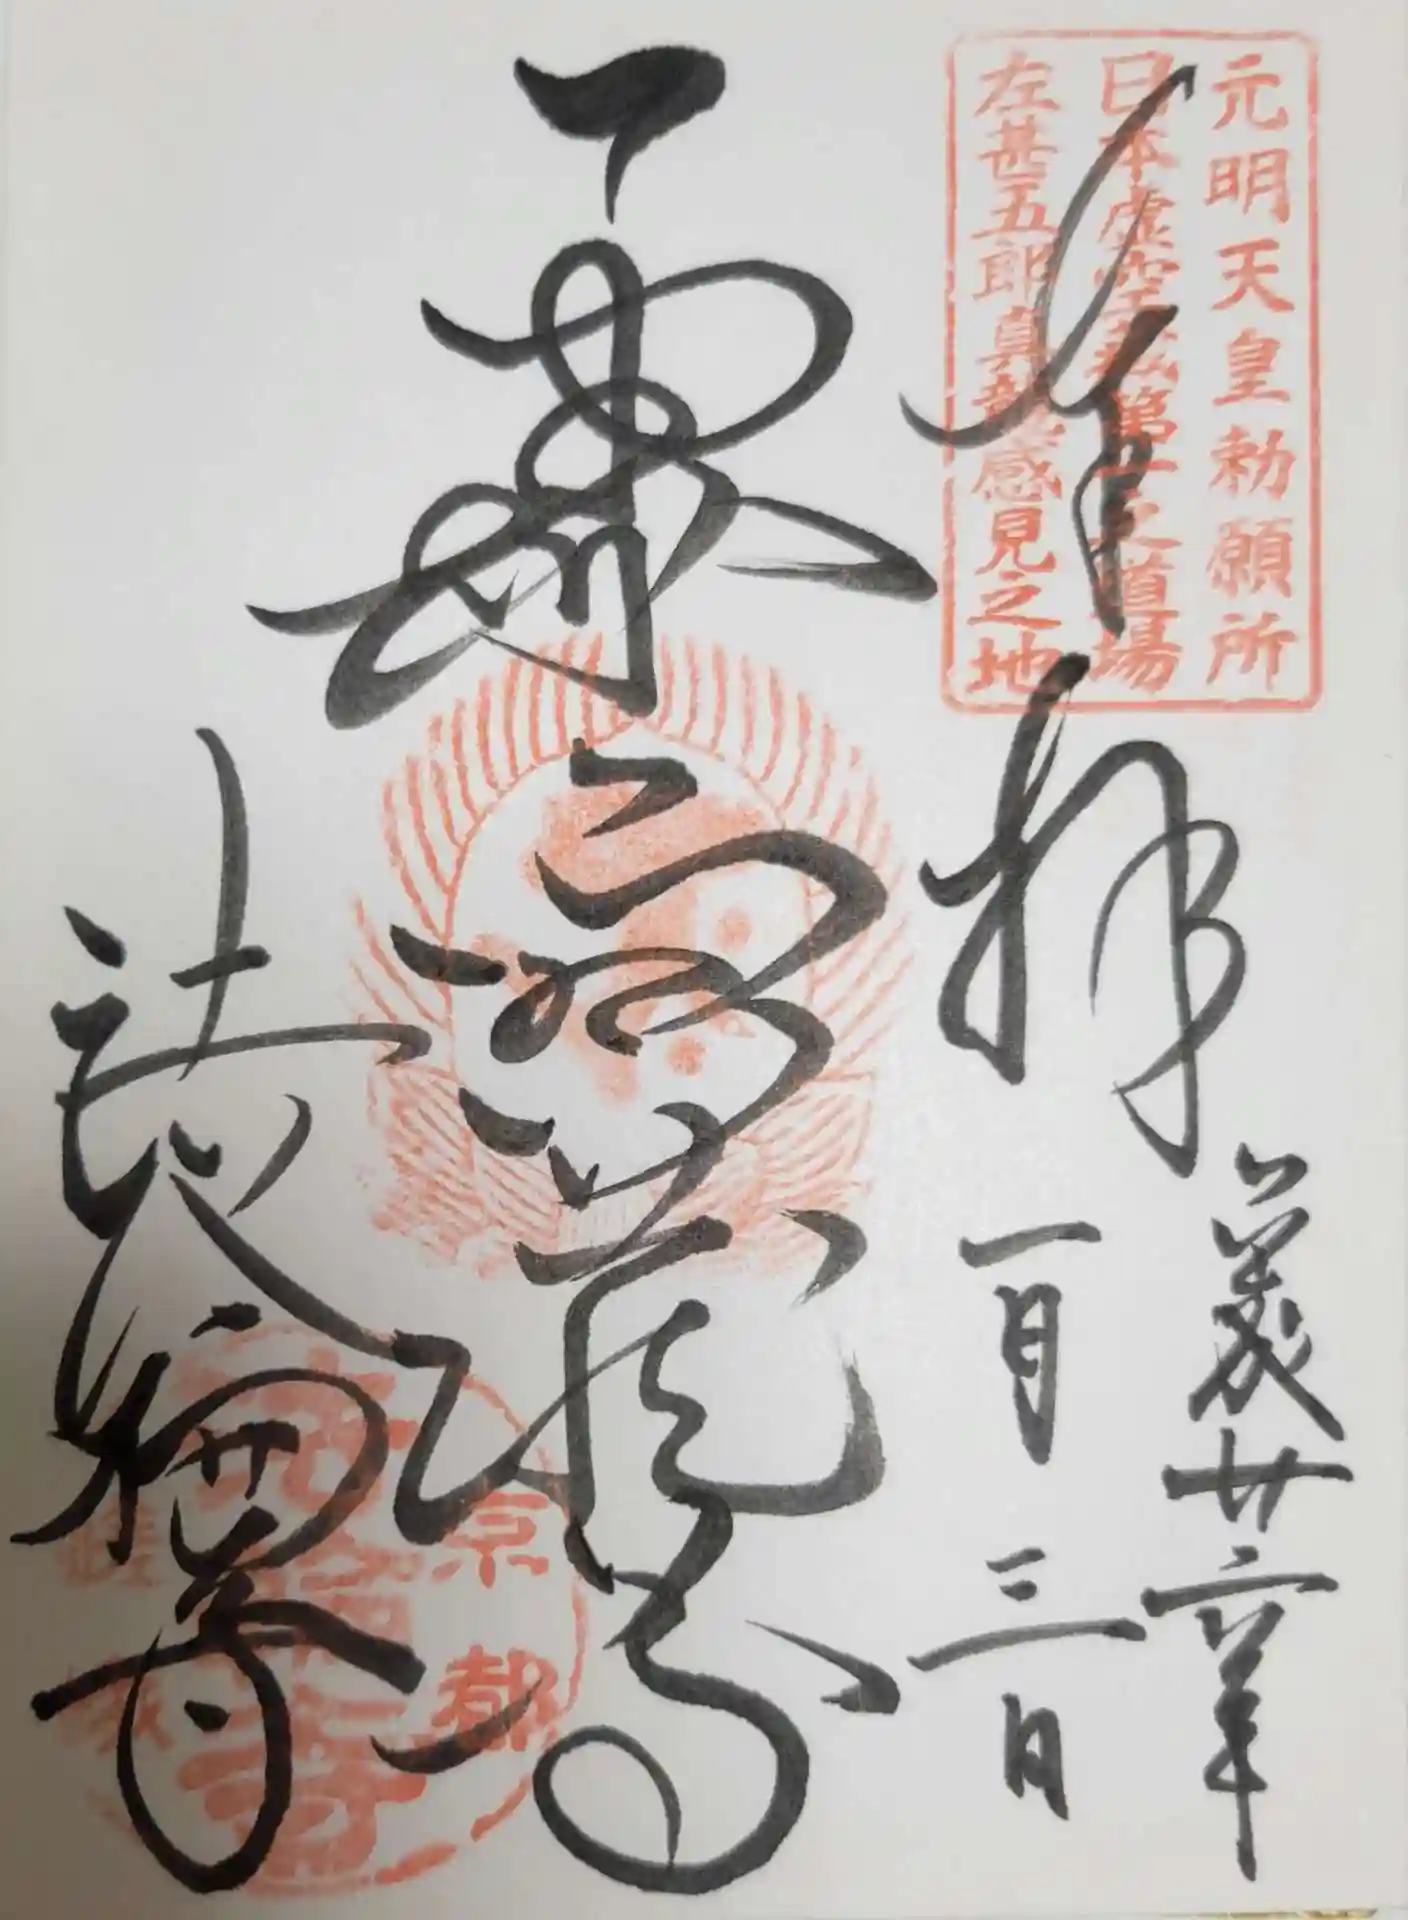 元明天皇勅願所
日本虚空蔵第一之道場
左甚五郎真 感見之地
奉拝
平成廿六年
一月三日
虚空蔵尊
法輪寺
京都
嵯峨